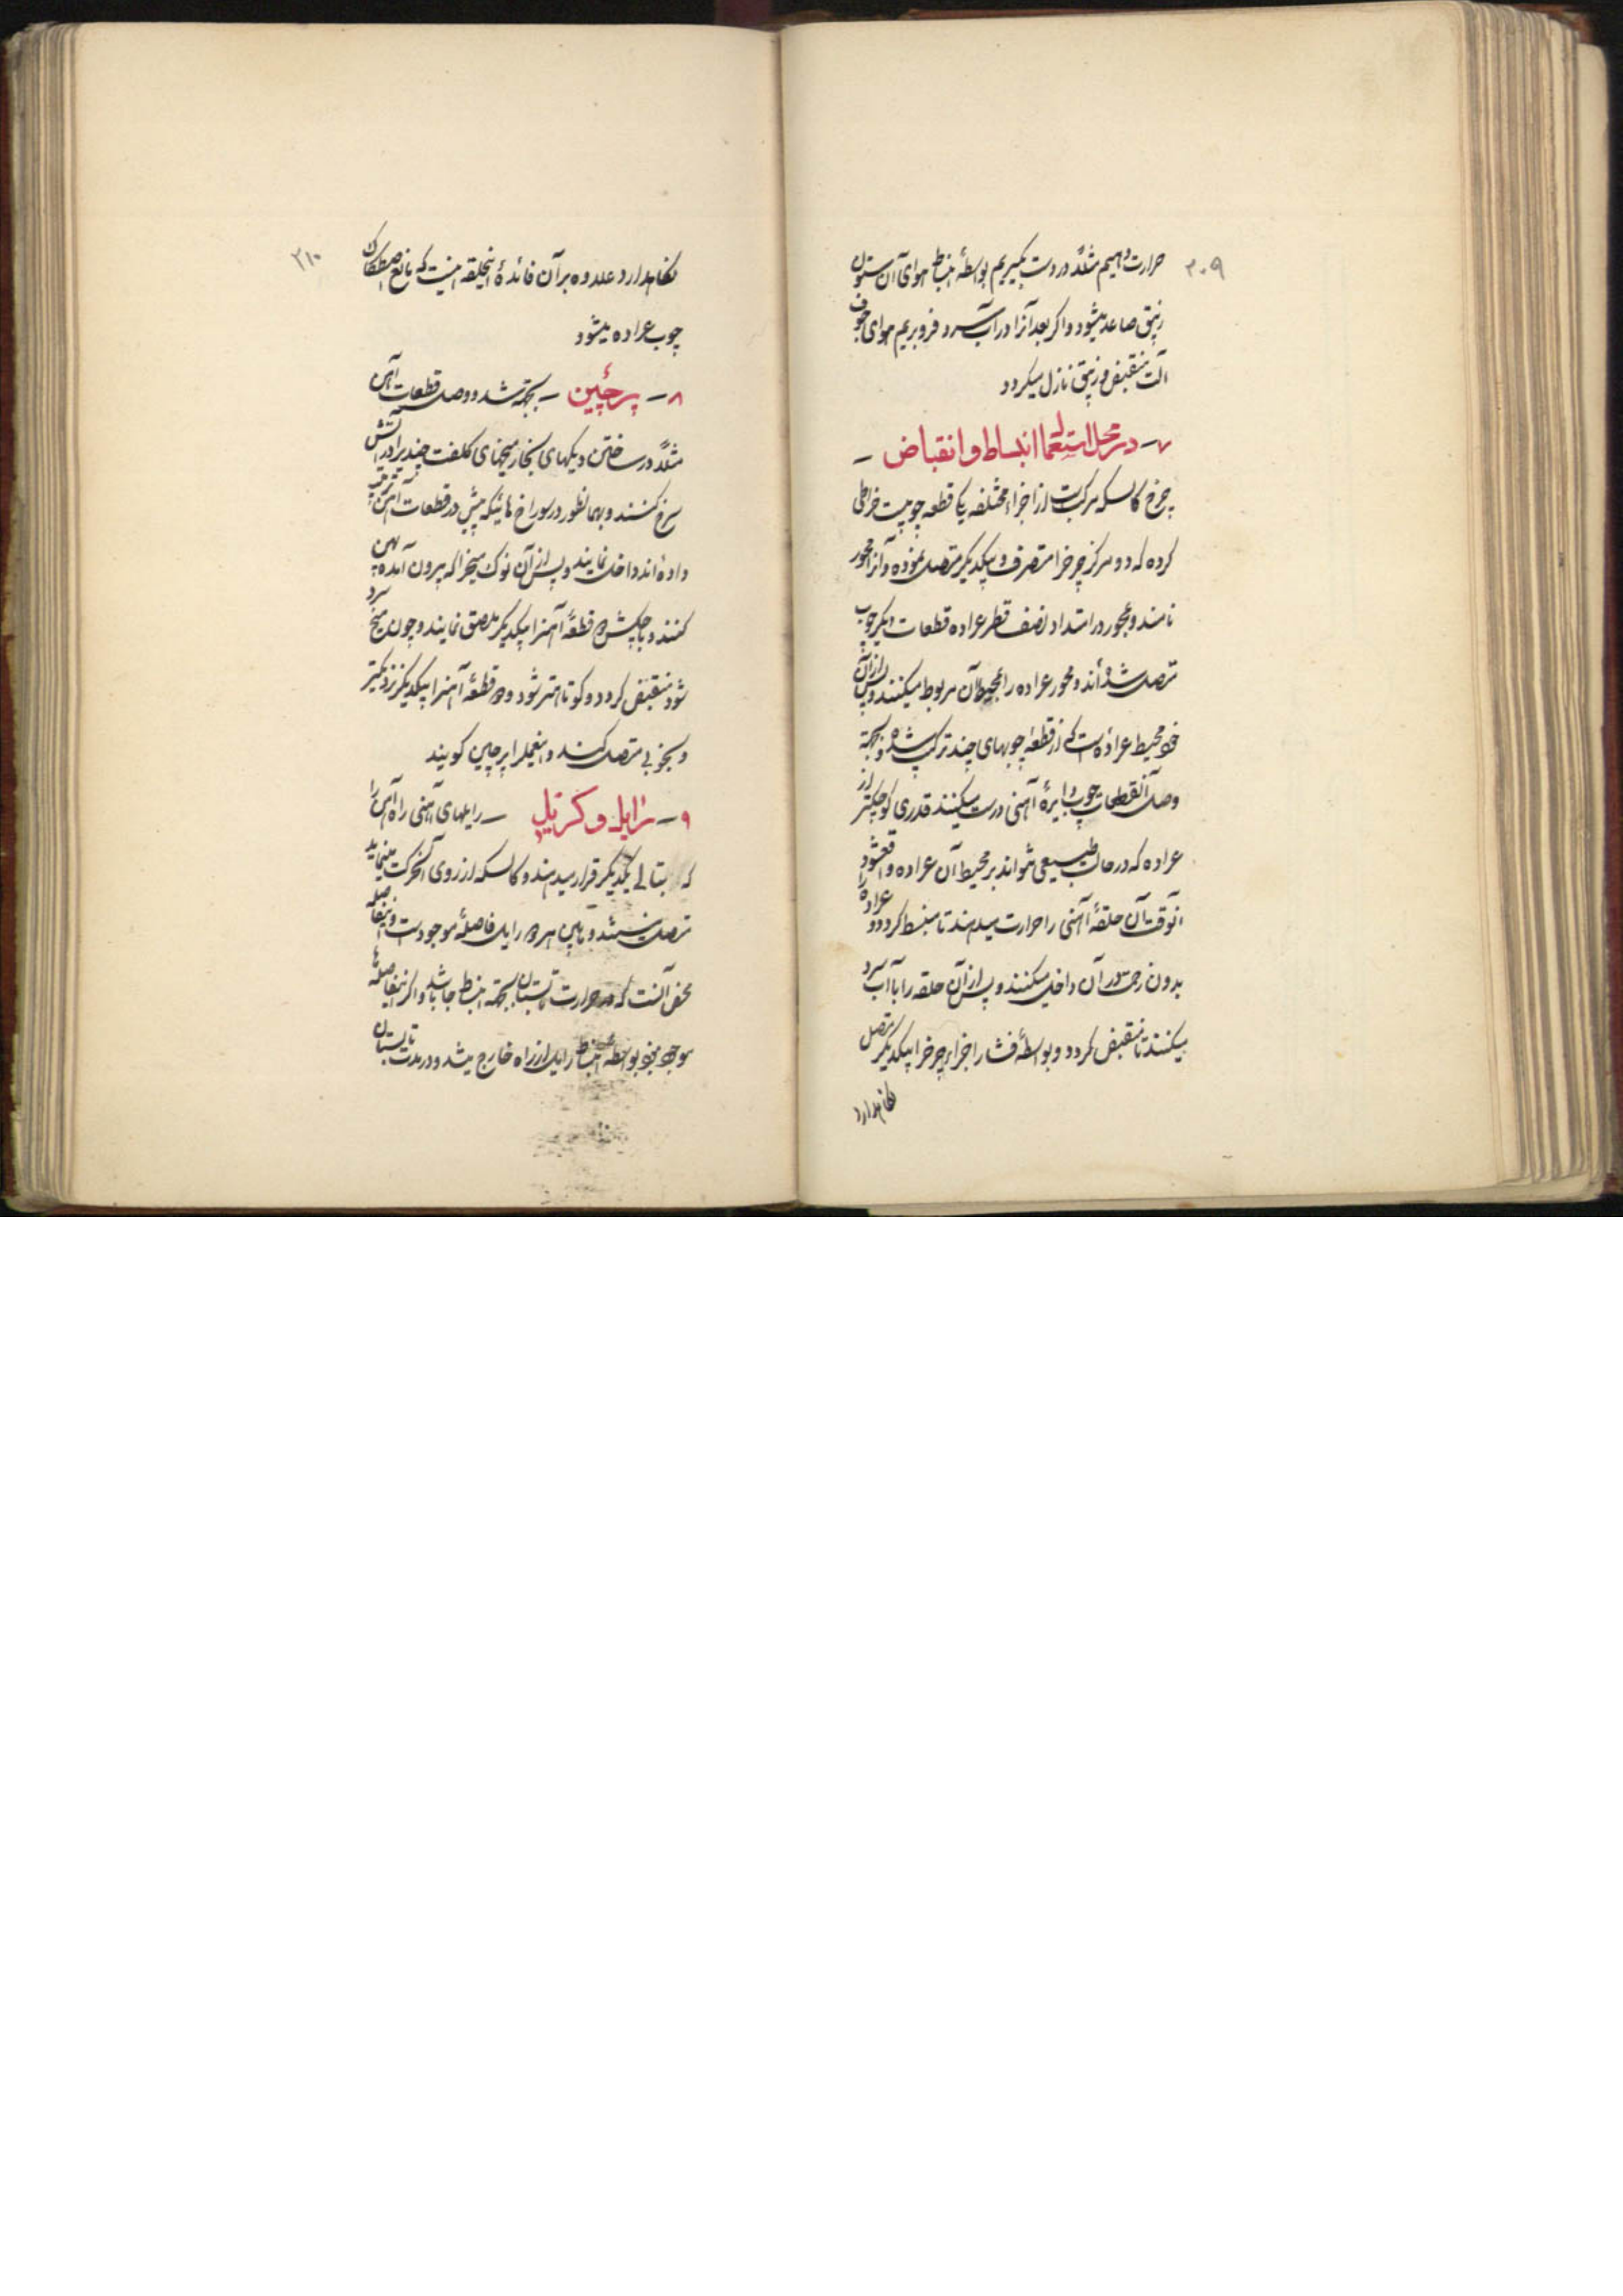 ۲۰۹
حرارت دهیم مثلاً در دست بگیریم بواسطهٔ انبساط هوای آن ستون
زیبق صاعد میشود و اگر بعد آنرا در آب سرد فرو بریم هوای جوف
آلت منقبض و زیبق نازل میگردد
۷ – در محل استعمال انبساط و انقباض –
چرخ کالسکه مرکب است از اجزاء مختلفه یک قطعه چوبیست خراطی
کرده که دو مرکز چرخ را متصرف و بیکدیگر متصل نموده و آنرا محور
نامند و بمحور در امتداد نصف قطر عراده قطعات دیگر چوب
متصل شده‌اند و محور عراده را بمحیط آن مربوط میکنند و پس از آن
خود محیط عراده است که از قطعه چوبهای چند ترکیب شده و بجهة
وصل آنقطعات چوب دایرهٔ آهنی درست میکنند قدری کوچکتر از
عراده که در حالت طبیعی نتواند بر محیط آن عراده واقع شود
آنوقت آن حلقهٔ آهنی را حرارت میدهند تا منبسط گردد و عراده را
بدون زحمت در آن داخل میکنند و پس از آن حلقه را با آب سرد
میکنند تا منقبض گردد و بواسطهٔ فشار اجزاء چرخ را بیکدیگر متصل
نگاهدارد
۲۱۰
نگاهدارد علاوه بر آن فائدهٔ اینحلقه اینست که مانع اصطکاک
چوب عراده میشود
۸ – پرچین – بجهة شد و وصل قطعات آهن
مثلاً در ساختن دیگهای بخار میخهای کلفت چندیرا در آتش
سرخ کنند و بهمانطور در سوراخ هائیکه پیش در قطعات آهن ترتیب
داده‌اند داخل نمایند و پس از آن نوک میخ را که بیرون آمده پهن
کنند و با چکش دو قطعهٔ آهنرا بیکدیگر ملصق نمایند و چون میخ سرد
شود منقبض گردد و کوتاهتر شود و دو قطعهٔ آهنرا بیکدیگر نزدیکتر
و بخوبی متصل کند و اینعملرا پرچین گویند
۹ – رایل و کرتیل – رایلهای آهنی راه آهن را
که بتالی یکدیگر قرار میدهند و کالسکه از روی آنحرکت مینماید
متصل نیستند و مابین هر دو رایل فاصلهٔ موجود است و اینفاصله
محض آنست که در حرارت تابستان بجهة انبساط جا باشد و اگر اینفاصله‌ها
موجود نبود بواسطه انبساط رایل از راه خارج میشد و در مدت تابستان